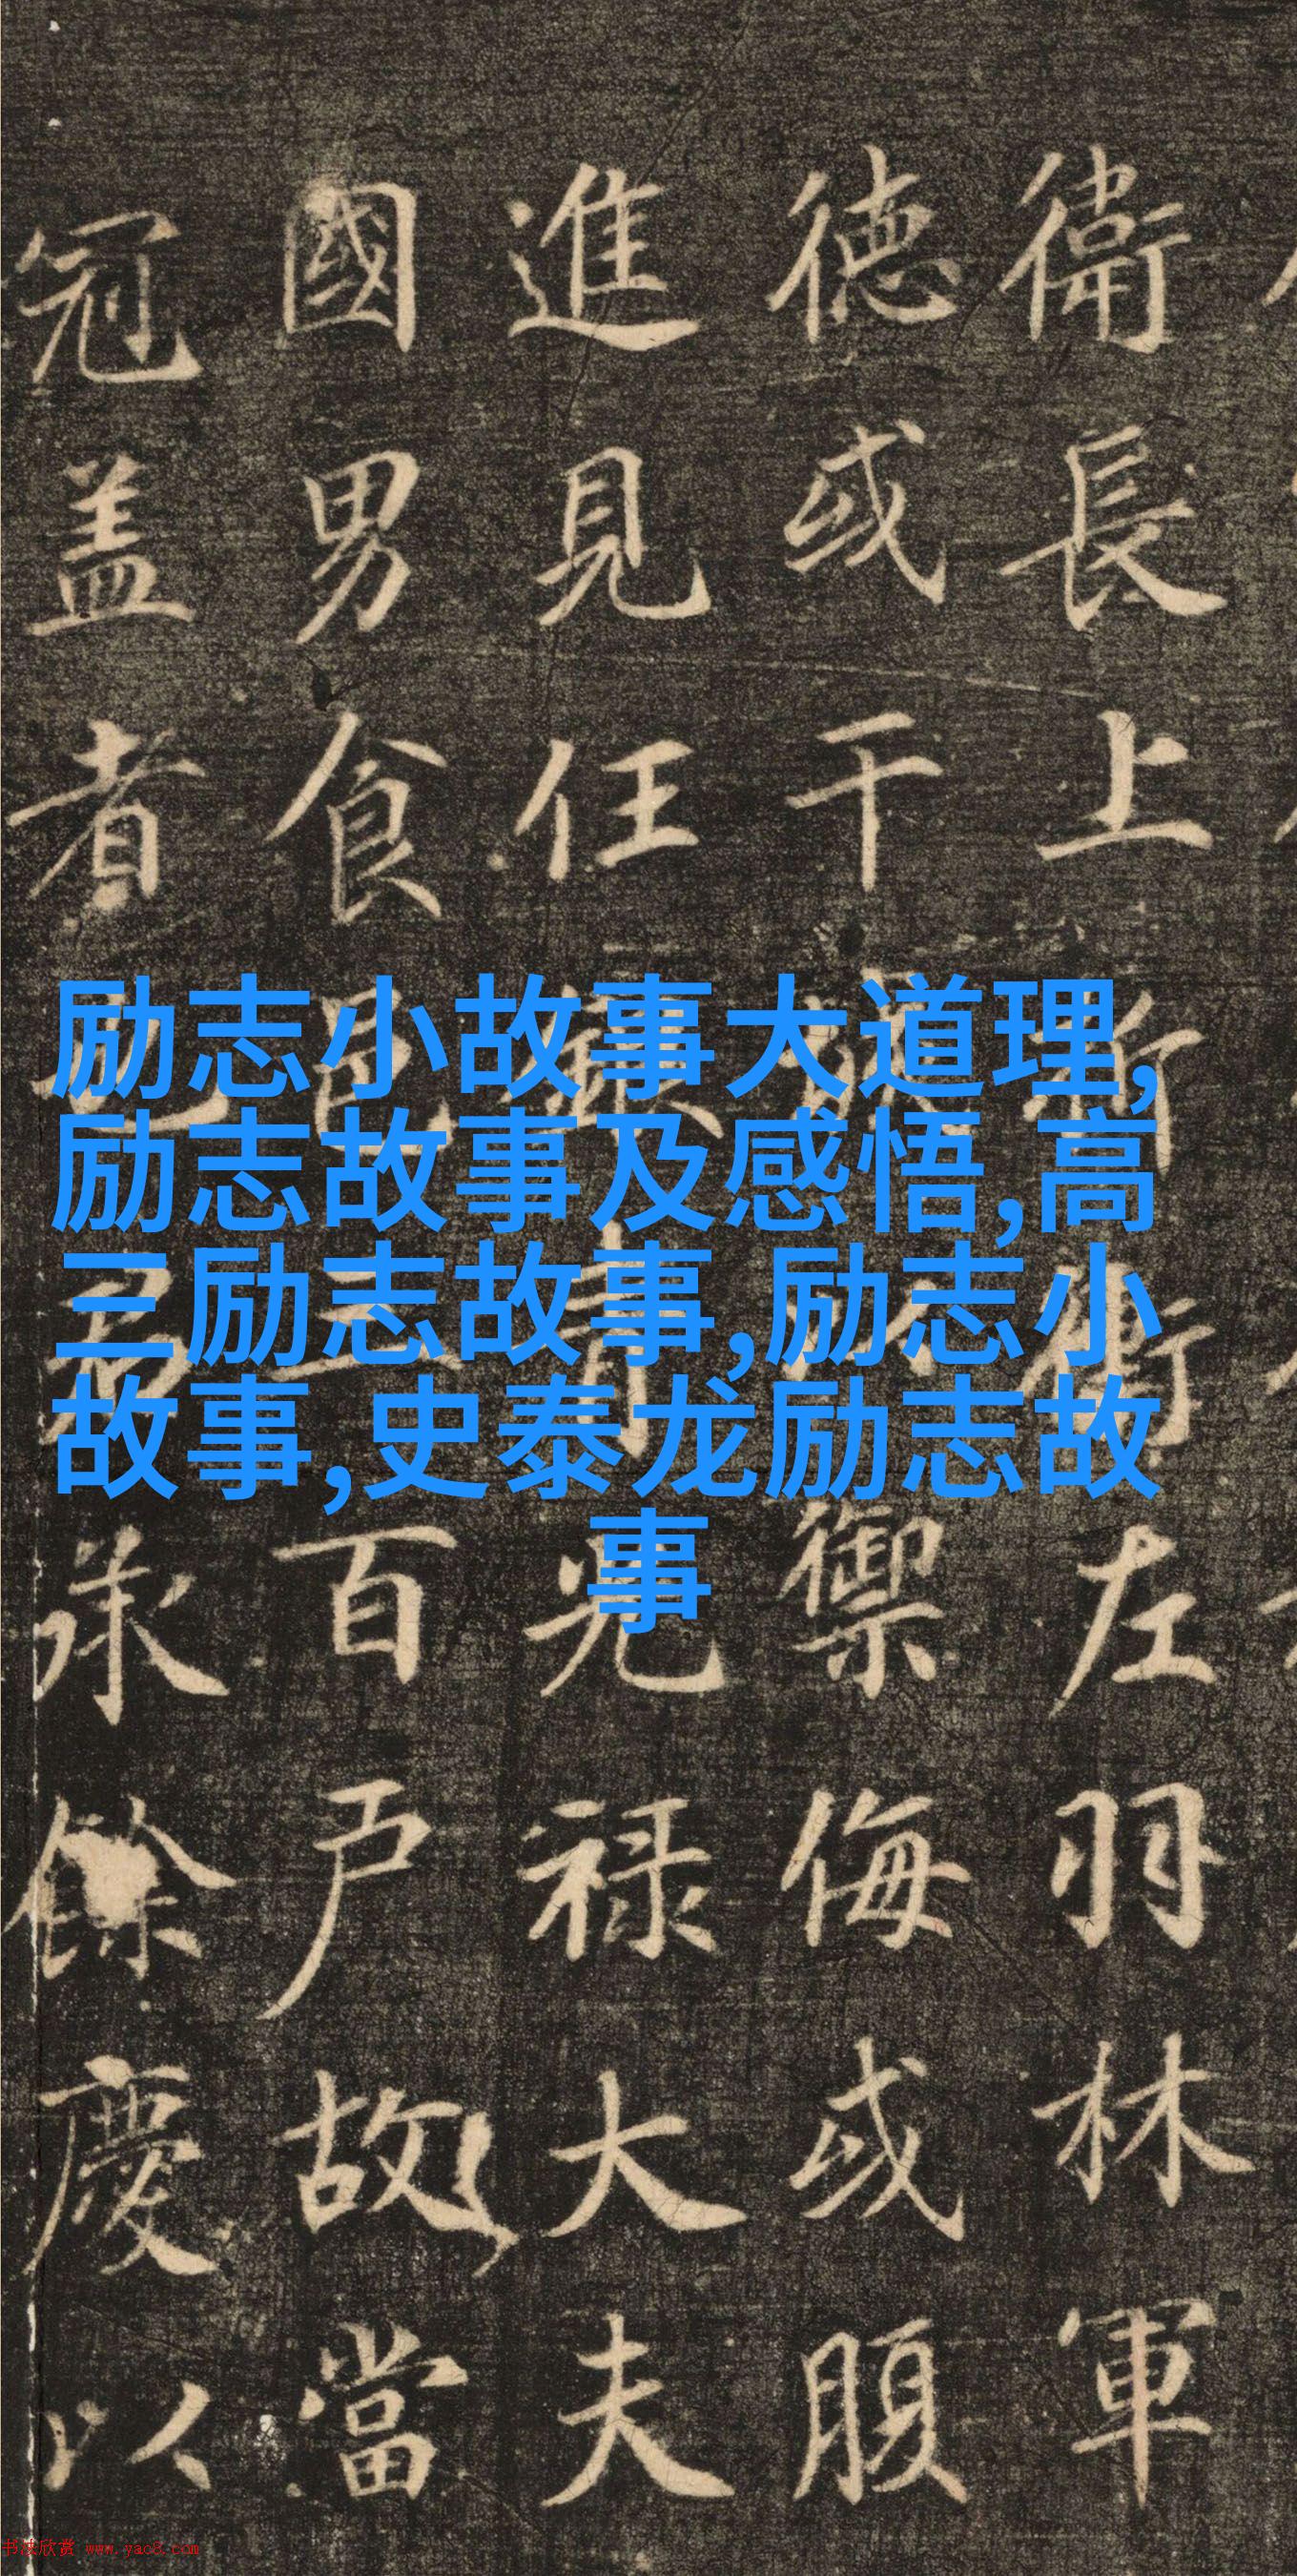 励志小故事大道理,
励志故事及感悟,高
三励志故事,励志小
故事,史泰龙励志故
事
衛長上折衝左羽林軍
德或干城禦侮或腹
進見任銀青光禄大夫
國男食邑三百戶故當
冠盖者也承餘慶以
书法欣赏 www.yac8.com